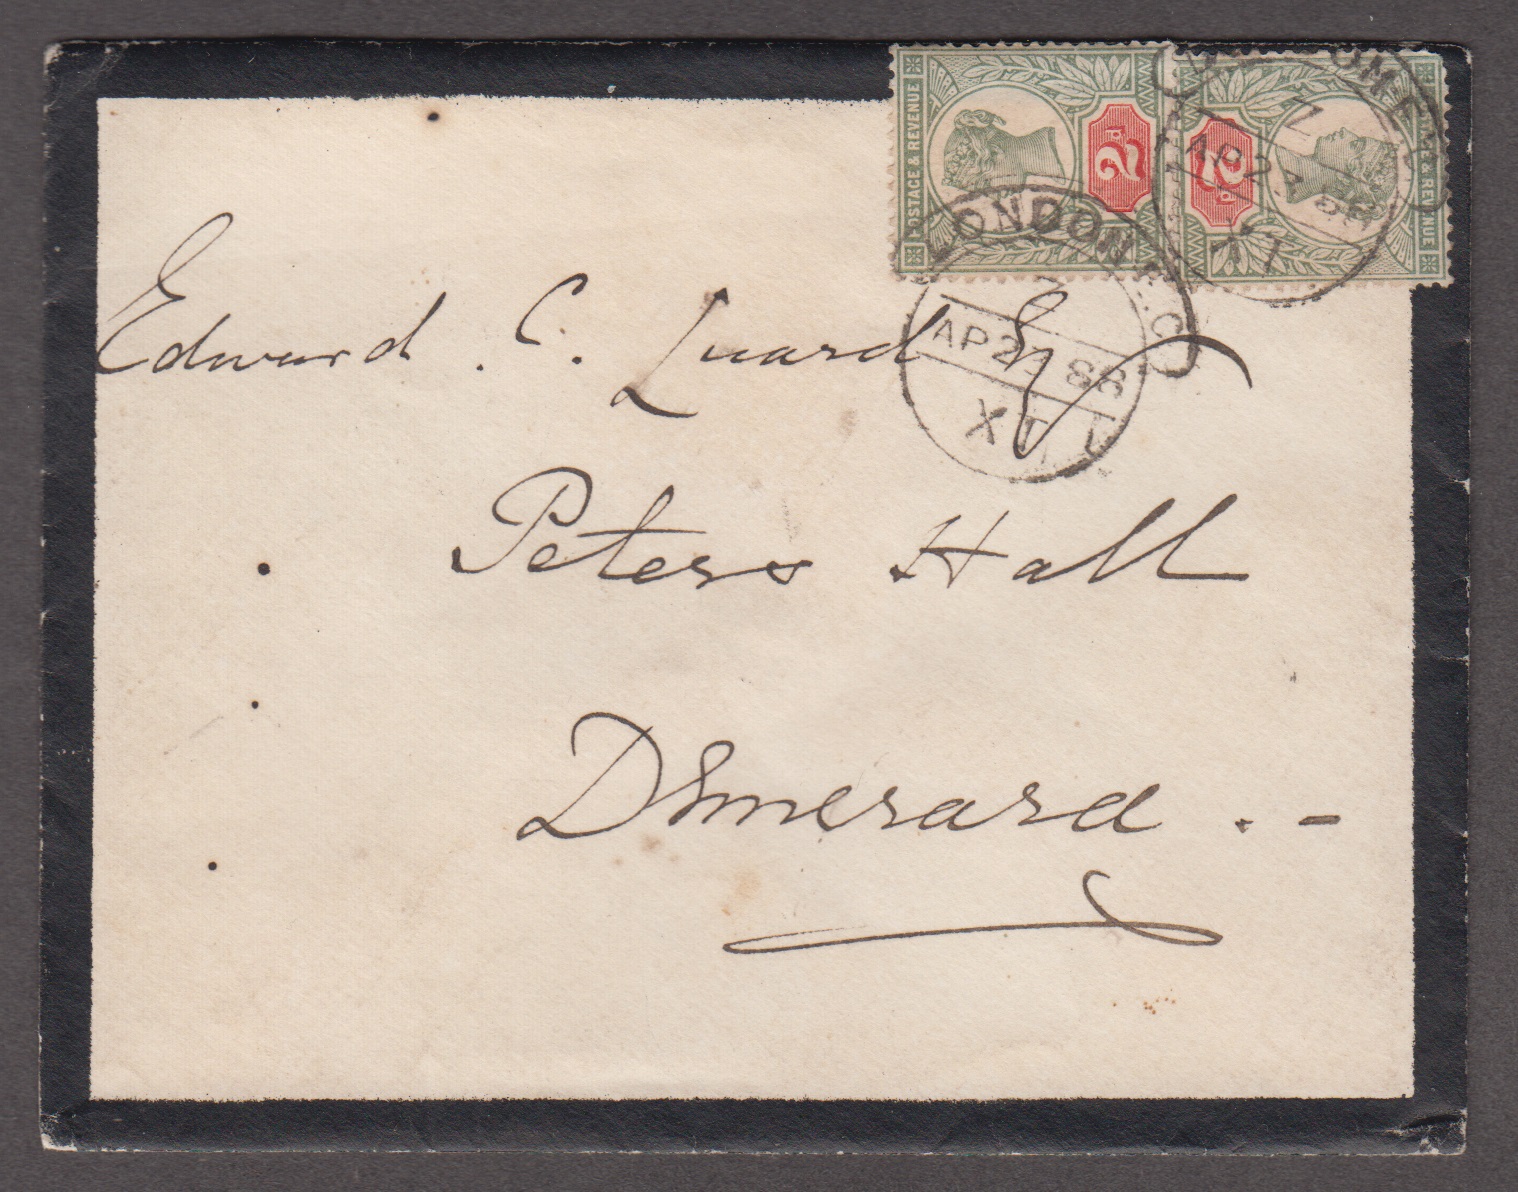 POSTAGE & REVENUE
2d
2d
POSTAGE & REVENUE
Z
AP 24 88
XI
LONDON E.C
Z
AP 24 88
XI
Edward . C. Luard Esq
Peters Hall
Demerara . -